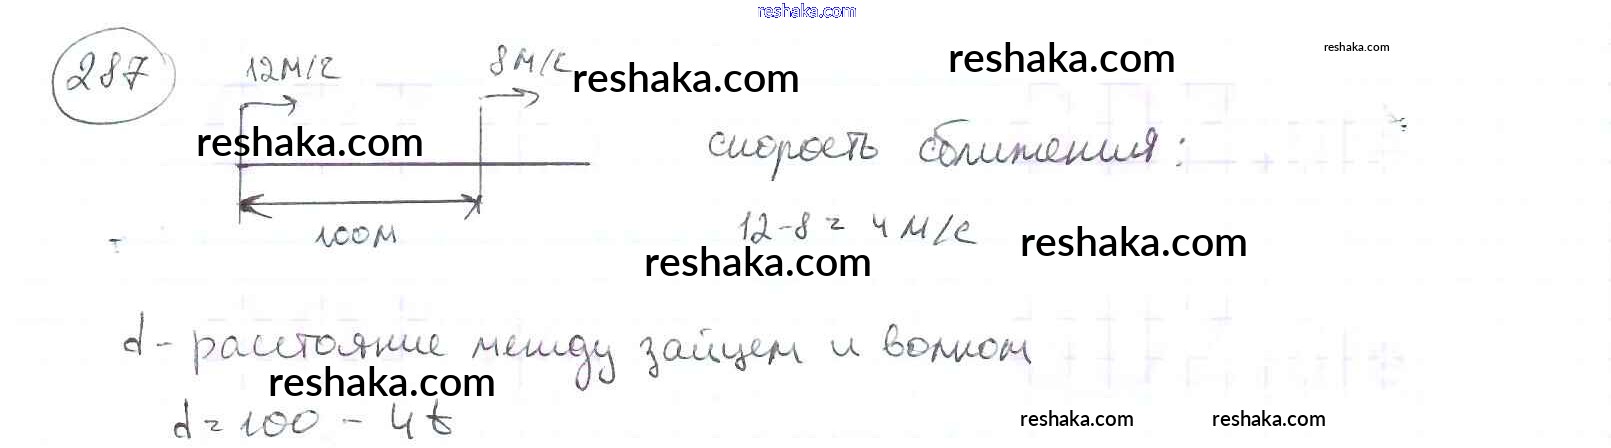 reshaka.com
287
12м/с
8м/с
reshaka.com
reshaka.com
reshaka.com
reshaka.com
скорость сближения:
100м
12-8 = 4 м/с
reshaka.com
reshaka.com
d - расстояние между зайцем и волком
reshaka.com
d = 100 - 4t
reshaka.com
reshaka.com